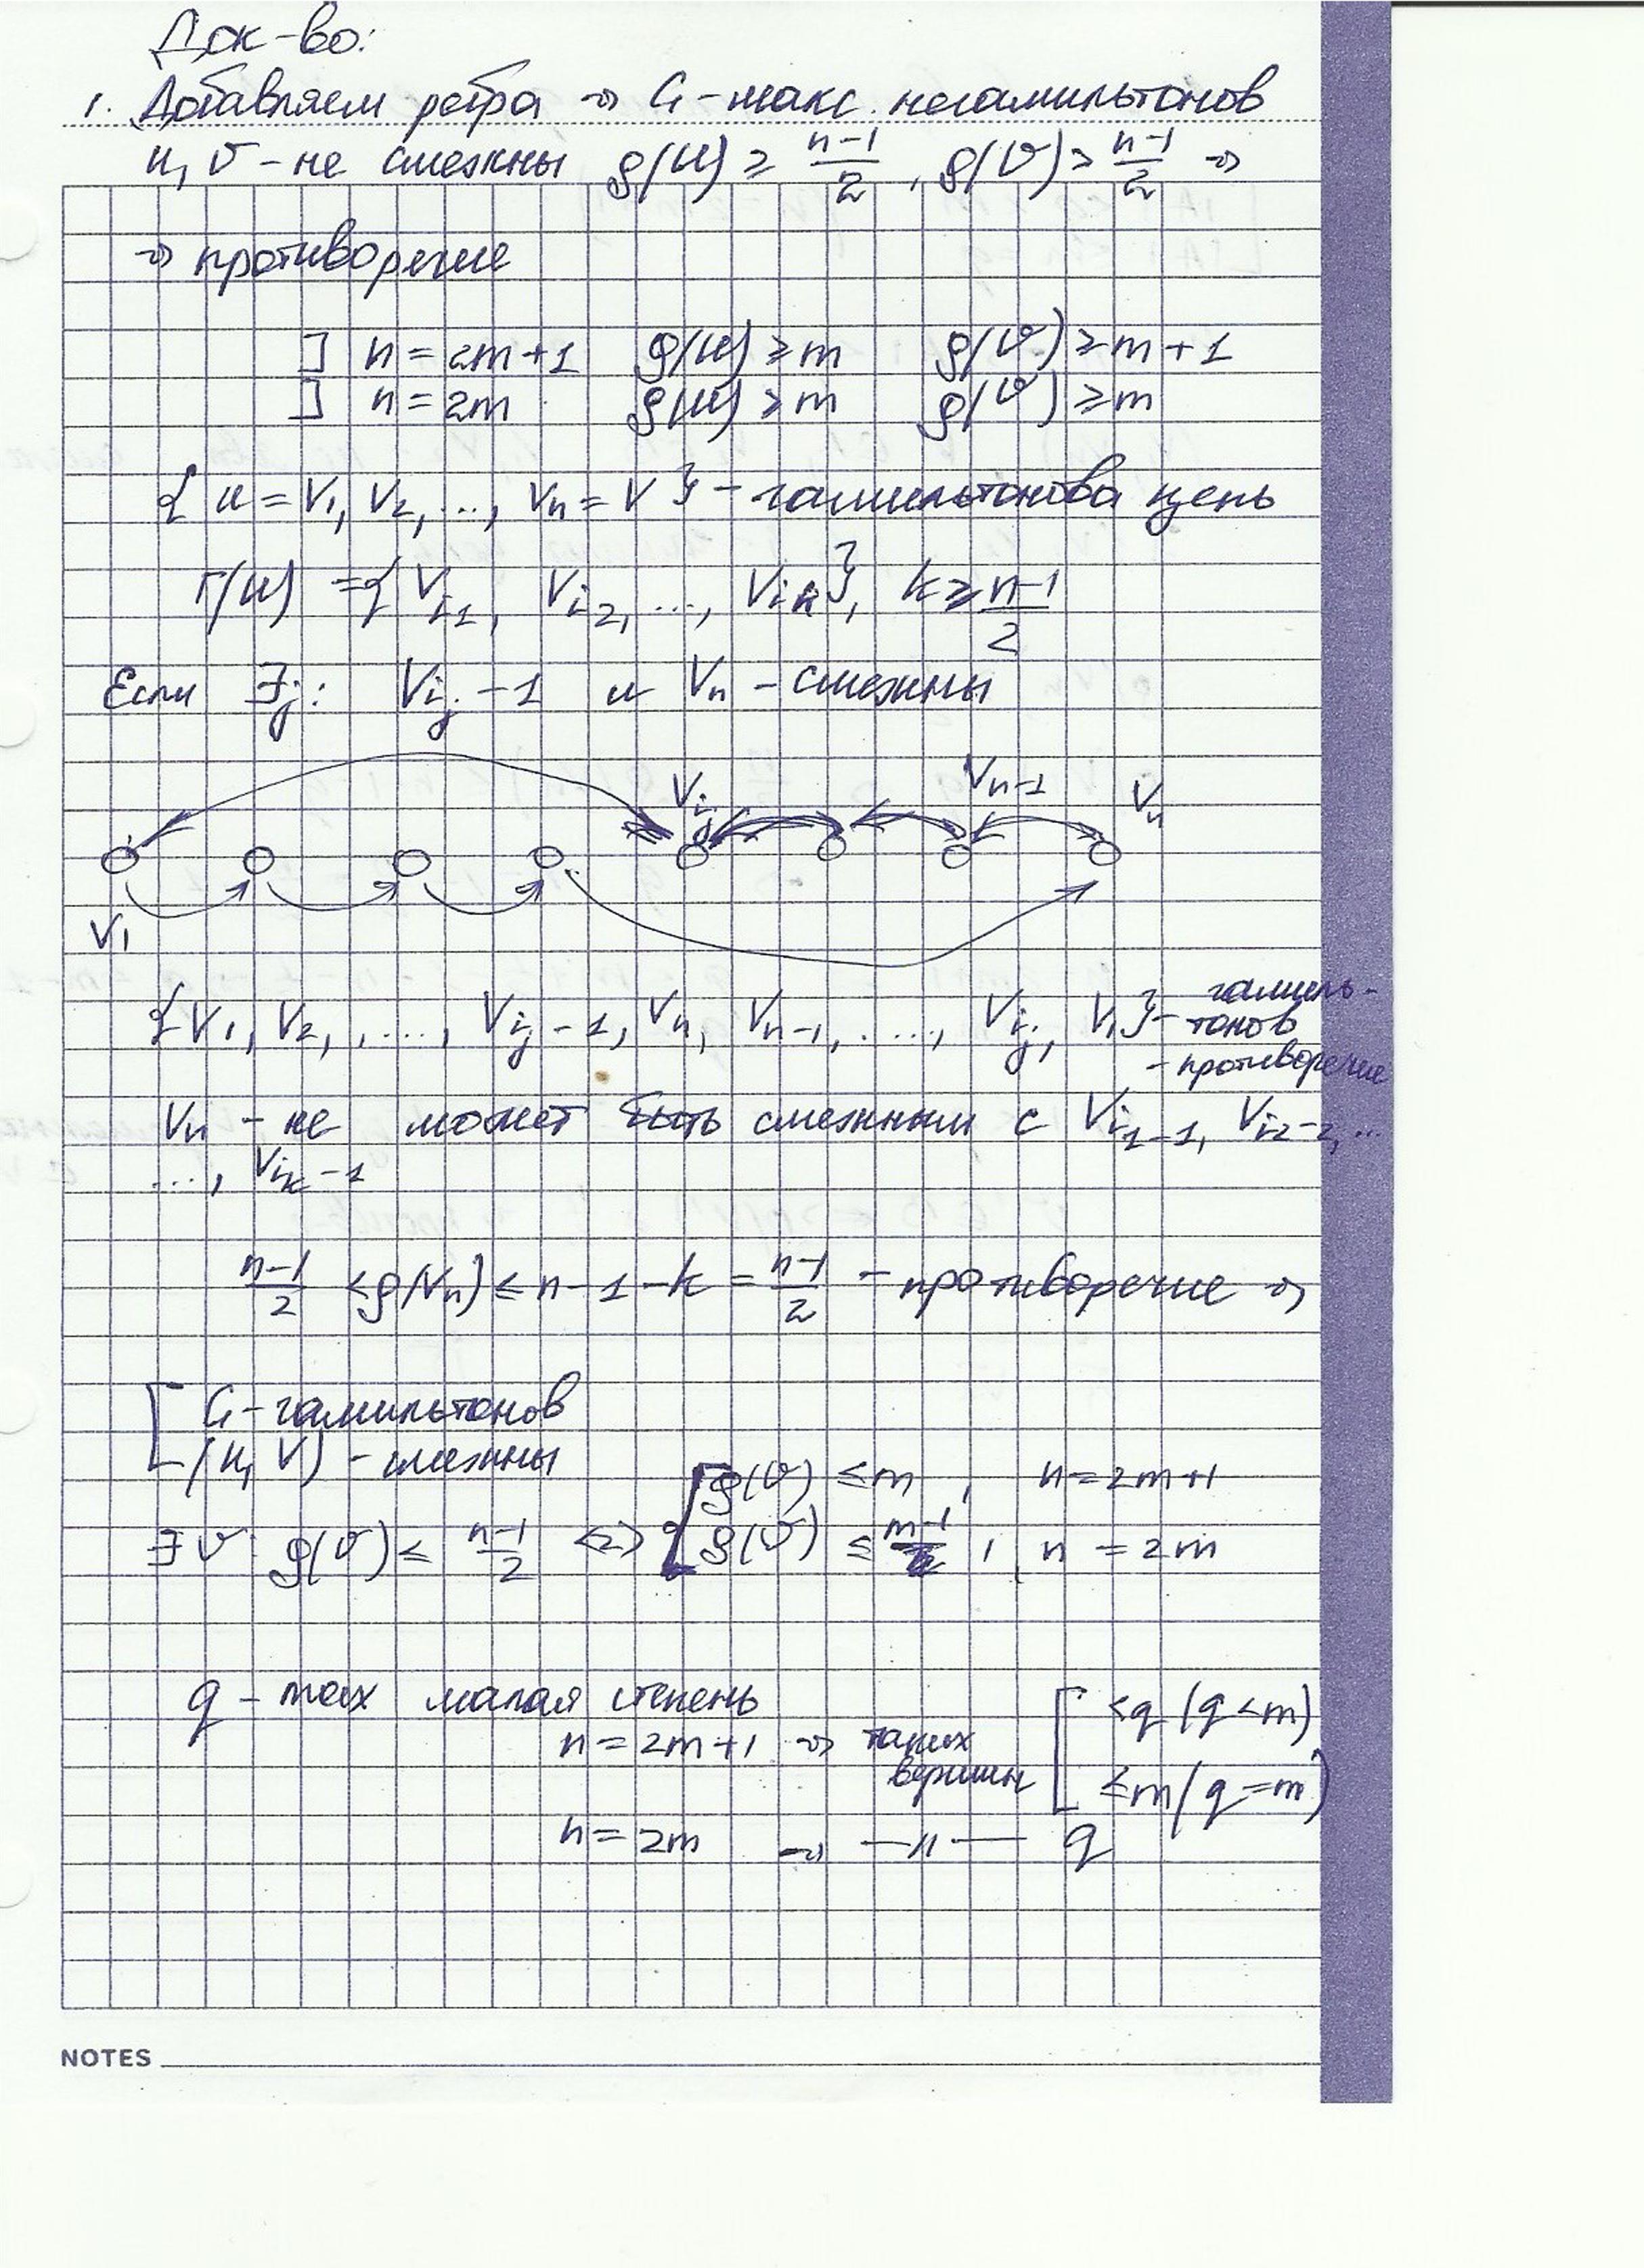 Док-во:
1. Добавляем ребра ⇒ G-макс. негамильтонов
u, v - не смежны ρ(u) ≥ n-1/2, ρ(v) > n-1/2 ⇒
⇒ противоречие
] n = 2m+1 ρ(u) ≥ m ρ(v) ≥ m+1
] n = 2m ρ(u) ≥ m ρ(v) ≥ m
{ u = V1, V2, ..., Vn = V } - гамильтонова цепь
Γ(u) = { Vi1, Vi2, ..., Vik }, k ≥ n-1/2
Если ∃j: Vij-1 и Vn - смежны
Vij Vn-1 Vn
V1
{ V1, V2, ...., Vij-1, Vn, Vn-1, ...., Vij, V1 } - гамиль-
тонов
- противоречие
Vn - не может быть смежным с Vi1-1, Vi2-2, ...
..., Vik-1
n-1/2 < ρ(Vn) ≤ n-1-k = n-1/2 - противоречие ⇒
[ G - гамильтонов
(u, V) - смежны
∃ v: ρ(v) ≤ n-1/2 <=> [ ρ(v) ≤ m, n = 2m+1
ρ(v) ≤ m-1, n = 2m
q - max малая степень
n = 2m+1 ⇒ таких вершин [ <q (q<m)
≤m (q=m)
n = 2m ⇒ —〃— q
NOTES